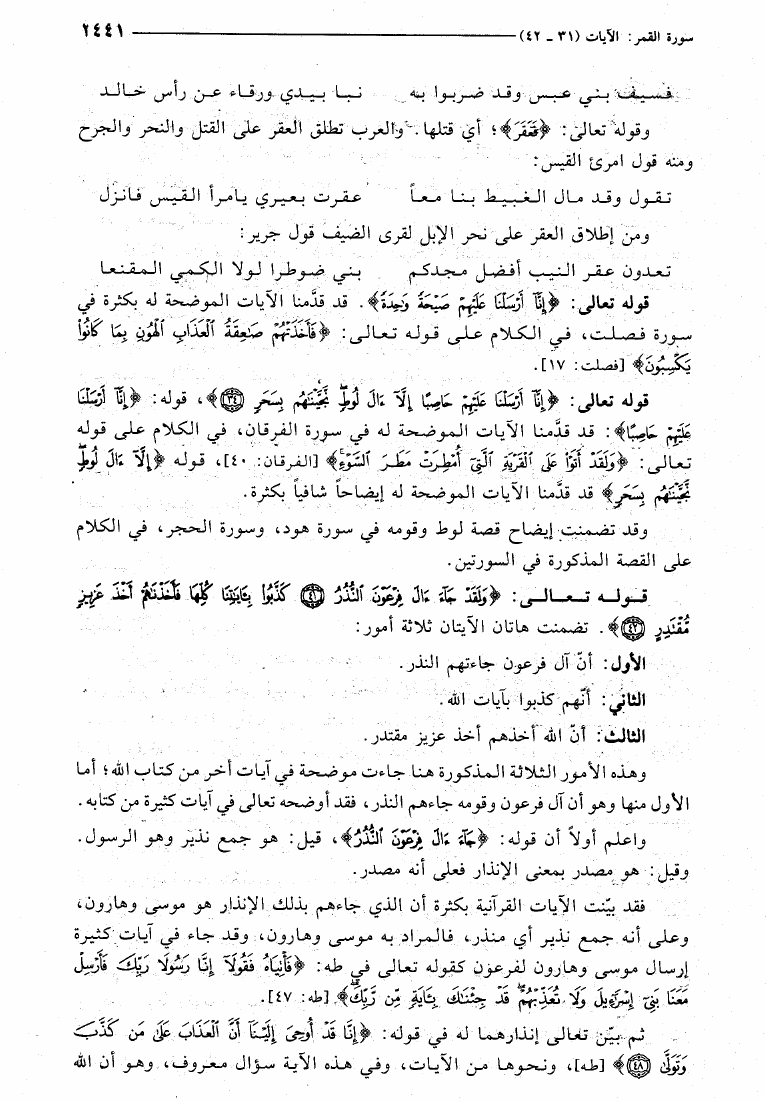 سورة القمر: الآيات (٣١ - ٤٢) ٢٤٤١
فسيف بني عبس وقد ضربوا به نبا بيدي ورقاء عن رأس خالد
وقوله تعالى: ﴿فَعَقَرَ﴾؛ أي قتلها. والعرب تطلق العقر على القتل والنحر والجرح
ومنه قول امرئ القيس:
تقول وقد مال الغبيط بنا معاً عقرت بعيري يامرأ القيس فانزل
ومن إطلاق العقر على نحر الإبل لقرى الضيف قول جرير:
تعدون عقر النيب أفضل مجدكم بني ضوطرا لولا الكمي المقنعا
قوله تعالى: ﴿إِنَّآ أَرْسَلْنَا عَلَيْهِمْ صَيْحَةً وَٰحِدَةً﴾. قد قدَّمنا الآيات الموضحة له بكثرة في
سورة فصلت، في الكلام على قوله تعالى: ﴿فَأَخَذَتْهُمْ صَٰعِقَةُ ٱلْعَذَابِ ٱلْهُونِ بِمَا كَانُوا۟
يَكْسِبُونَ﴾ [فصلت: ١٧].
قوله تعالى: ﴿إِنَّآ أَرْسَلْنَا عَلَيْهِمْ حَاصِبًا إِلَّآ ءَالَ لُوطٍ نَّجَّيْنَٰهُم بِسَحَرٍ ٣٤﴾، قوله: ﴿إِنَّآ أَرْسَلْنَا
عَلَيْهِمْ حَاصِبًا﴾: قد قدَّمنا الآيات الموضحة له في سورة الفرقان، في الكلام على قوله
تعالى: ﴿وَلَقَدْ أَتَوْا۟ عَلَى ٱلْقَرْيَةِ ٱلَّتِىٓ أُمْطِرَتْ مَطَرَ ٱلسَّوْءِ﴾ [الفرقان: ٤٠]، قوله ﴿إِلَّآ ءَالَ لُوطٍ
نَّجَّيْنَٰهُم بِسَحَرٍ﴾ قد قدَّمنا الآيات الموضحة له إيضاحاً شافياً بكثرة.
وقد تضمنت إيضاح قصة لوط وقومه في سورة هود، وسورة الحجر، في الكلام
على القصة المذكورة في السورتين.
قوله تعالى: ﴿وَلَقَدْ جَآءَ ءَالَ فِرْعَوْنَ ٱلنُّذُرُ ٤١ كَذَّبُوا۟ بِـَٔايَٰتِنَا كُلِّهَا فَأَخَذْنَٰهُمْ أَخْذَ عَزِيزٍ
مُّقْتَدِرٍ ٤٢﴾. تضمنت هاتان الآيتان ثلاثة أمور:
الأول: أنّ آل فرعون جاءتهم النذر.
الثاني: أنّهم كذبوا بآيات الله.
الثالث: أنّ الله أخذهم أخذ عزيز مقتدر.
وهذه الأمور الثلاثة المذكورة هنا جاءت موضحة في آيات أخر من كتاب الله؛ أما
الأول منها وهو أن آل فرعون وقومه جاءهم النذر، فقد أوضحه تعالى في آيات كثيرة من كتابه.
واعلم أولاً أن قوله: ﴿جَآءَ ءَالَ فِرْعَوْنَ ٱلنُّذُرُ﴾، قيل: هو جمع نذير وهو الرسول.
وقيل: هو مصدر بمعنى الإنذار فعلى أنه مصدر.
فقد بيّنت الآيات القرآنية بكثرة أن الذي جاءهم بذلك الإنذار هو موسى وهارون،
وعلى أنه جمع نذير أي منذر، فالمراد به موسى وهارون، وقد جاء في آيات كثيرة
إرسال موسى وهارون لفرعون كقوله تعالى في طه: ﴿فَأْتِيَاهُ فَقُولَآ إِنَّا رَسُولَا رَبِّكَ فَأَرْسِلْ
مَعَنَا بَنِىٓ إِسْرَٰٓءِيلَ وَلَا تُعَذِّبْهُمْ قَدْ جِئْنَٰكَ بِـَٔايَةٍ مِّن رَّبِّكَ﴾ [طه: ٤٧].
ثم بيّن تعالى إنذارهما له في قوله: ﴿إِنَّا قَدْ أُوحِىَ إِلَيْنَآ أَنَّ ٱلْعَذَابَ عَلَىٰ مَن كَذَّبَ
وَتَوَلَّىٰ ٤٨﴾ [طه]، ونحوها من الآيات، وفي هذه الآية سؤال معروف، وهو أن الله